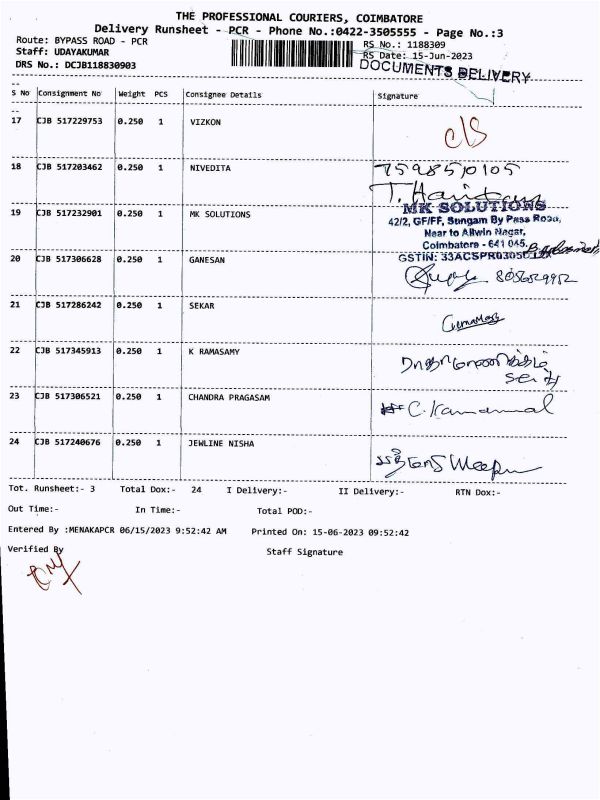 THE PROFESSIONAL COURIERS, COIMBATORE
Delivery Runsheet - PCR - Phone No.:0422-3505555 - Page No.:3
Route: BYPASS ROAD - PCR
RS No.: 1188309
Staff: UDAYAKUMAR
RS Date: 15-Jun-2023
DRS No.: DCJB118830903
DOCUMENTS DELIVERY
S No Consignment No Weight PCS Consignee Details Signature
17 CJB 517229753 0.250 1 VIZKON
c/s
18 CJB 517203462 0.250 1 NIVEDITA
7598510105
19 CJB 517232901 0.250 1 MK SOLUTIONS
MK SOLUTIONS
42/2, GF/FF, Sungam By Pass Road,
Near to Allwin Nagar,
Coimbatore - 641 045.
20 CJB 517306628 0.250 1 GANESAN
21 CJB 517286242 0.250 1 SEKAR
22 CJB 517345913 0.250 1 K RAMASAMY
23 CJB 517306521 0.250 1 CHANDRA PRAGASAM
24 CJB 517240676 0.250 1 JEWLINE NISHA
Tot. Runsheet:- 3 Total Dox:- 24 I Delivery:- II Delivery:- RTN Dox:-
Out Time:- In Time:- Total POD:-
Entered By :MENAKAPCR 06/15/2023 9:52:42 AM Printed On: 15-06-2023 09:52:42
Verified By Staff Signature